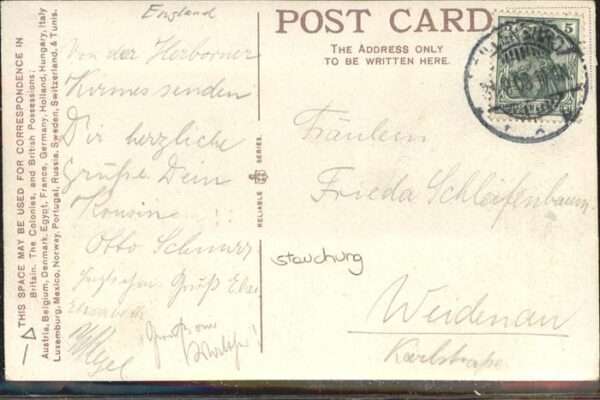 England
POST CARD
THE ADDRESS ONLY
TO BE WRITTEN HERE.
5
THIS SPACE MAY BE USED FOR CORRESPONDENCE IN
Britain, The Colonies, and British Possessions;
Austria, Belgium, Denmark, Egypt, France, Germany, Holland, Hungary, Italy
Luxemburg, Mexico, Norway, Portugal, Russia, Sweden, Switzerland, & Tunis.
Von der Herborner
Kirmes senden
Dir herzliche
Grüße Dein
Kousin
Otto Schwarz
Gruß
RELIABLE SERIES.
Fräulein
Frieda Schleifenbaum
stauchung
Weidenau
Karlstraße